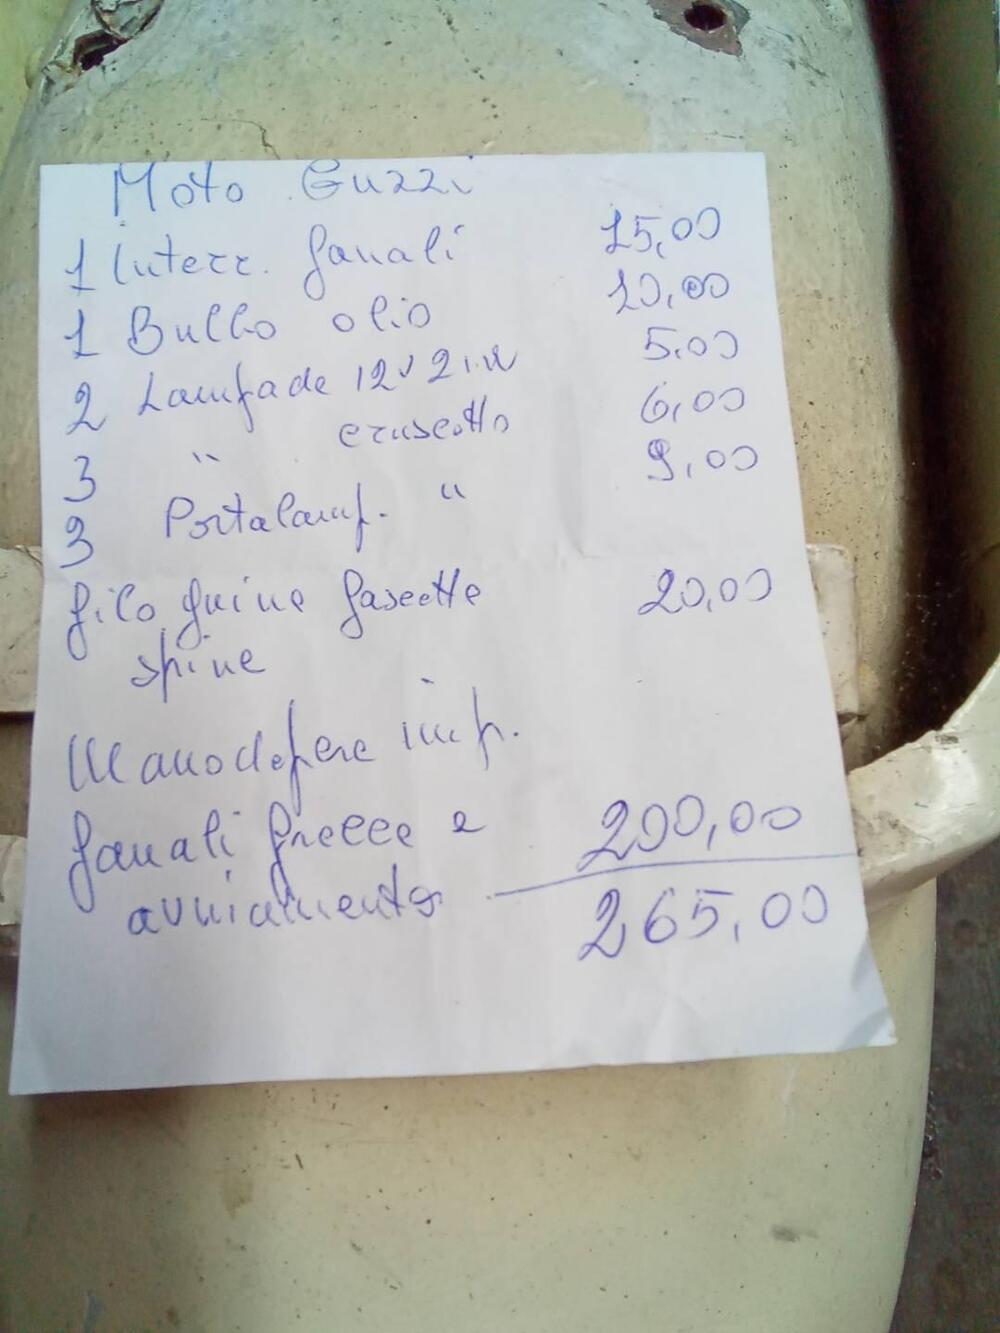 Moto Guzzi
1 Interr. fanali 15,00
1 Bulbo olio 10,00
2 Lampade 12V 5,00
3 " cruscotto 6,00
3 Portalamp. " 9,00
filo guine fascette 20,00
spine
Manodopere imp.
fanali frecce e 200,00
avviamento 265,00